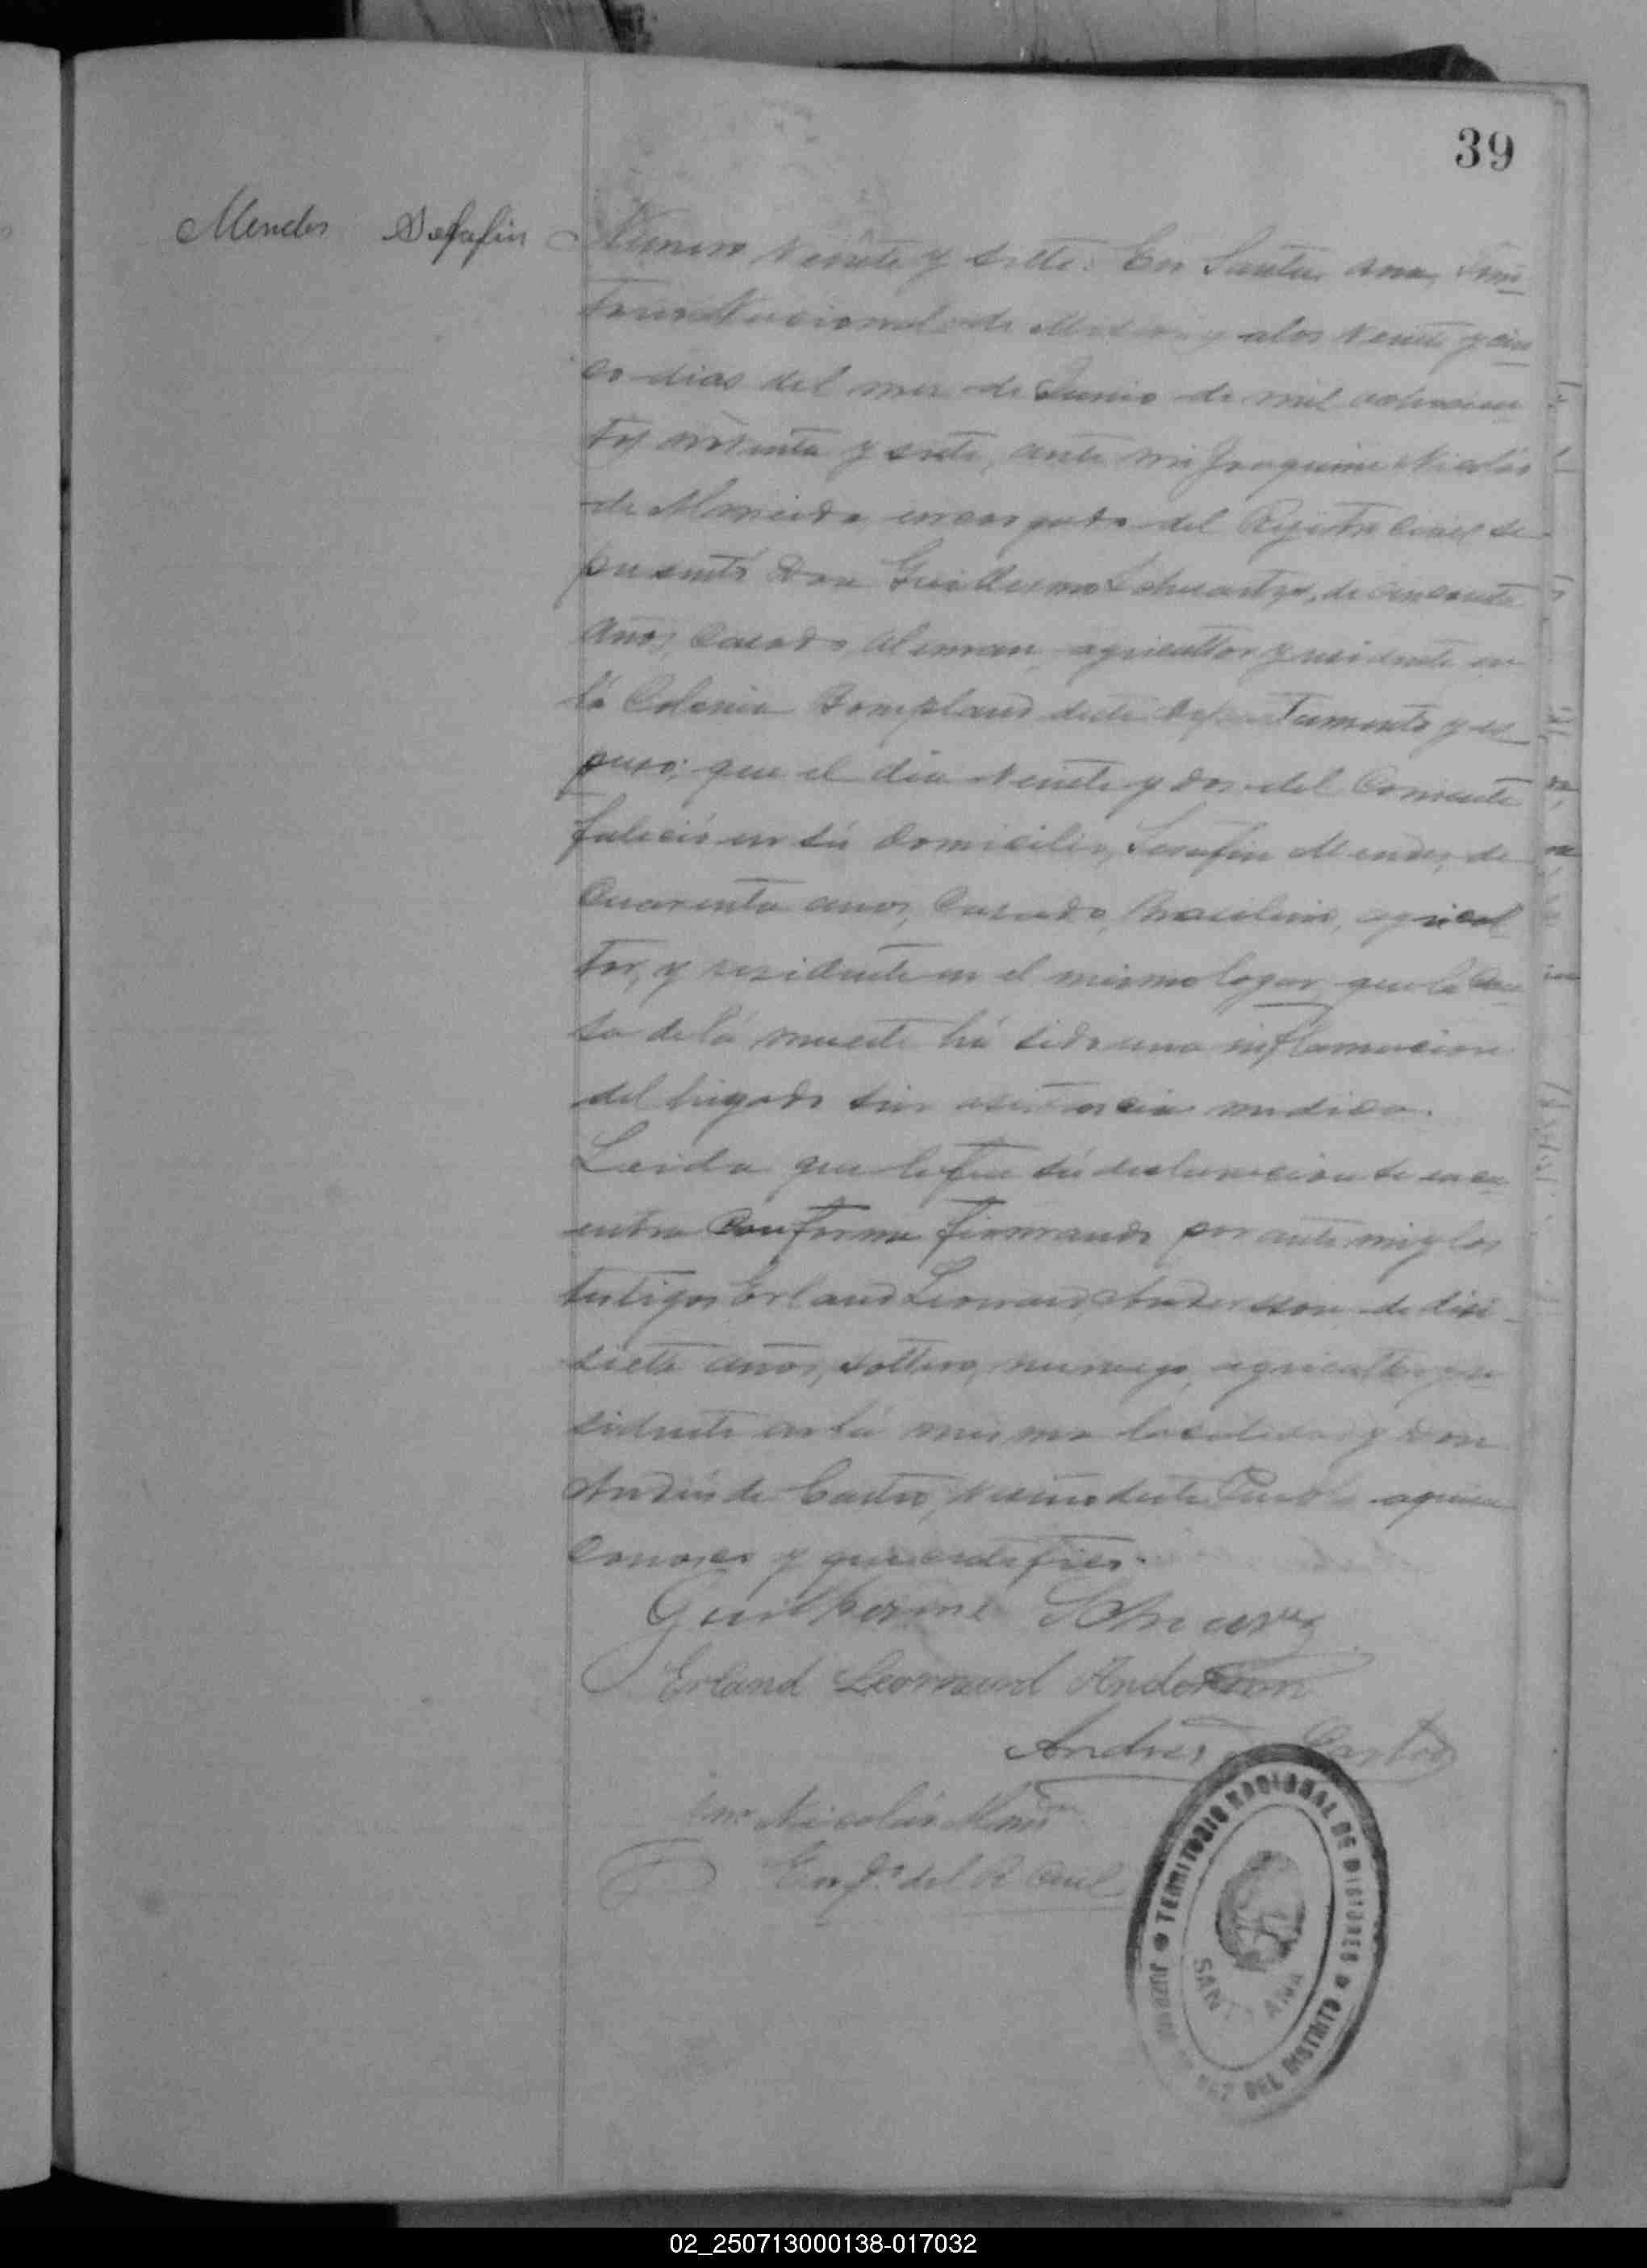 39
Mendes Serafin
Numero Veinte y siete: En Santa Ana, Terri
torio Nacional de Misiones, a los Veinte y cin
co dias del mes de Junio de mil ochocien
tos noventa y siete, ante mi Joaquim Nicolás
de Almeida encargado del Registro Civil se
presentó Don Guillermo Schuartz, de cincuenta
años, Casado, Aleman, agricultor y residente en
lá Colonia Bompland deste Departamento y es
puso; que el dia Veinte y dos del Corriente
faleció en sú domicilio, Serafin Mendes, de
Cuarenta anos, Casado, Brasilero, agricul
tor, y residente en el mismo logar que la Cau
sa de lá muerte há sido una inflamacion
del higado sin asistencia medica.
Leida que le fue sú declaracion se encu
entra Conforme firmando por ante mi y los
testigos Erland Leonard Anderson de dies
siete años, soltero, noruego, agricultor y re
sidente en lá misma localidad y Don
Andrés de Castro, vecino deste Pueblo a quien
conosco y que certifico.
Guilherme Schwarz
Erland Leornard Anderson
Andrés de Castro
Nicolás
Enc.do del R Civil
TERRITORIO NACIONAL DE MISIONES
JUZGADO DE PAZ DEL DISTRITO
SANTA ANA
02_250713000138-017032